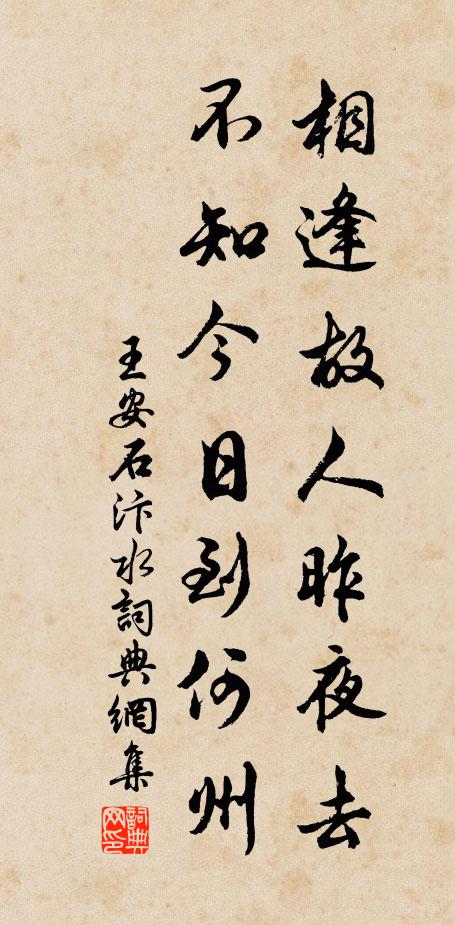 相逢故人昨夜去
不知今日到何州
王安石汴水詞典網集
詞典網印